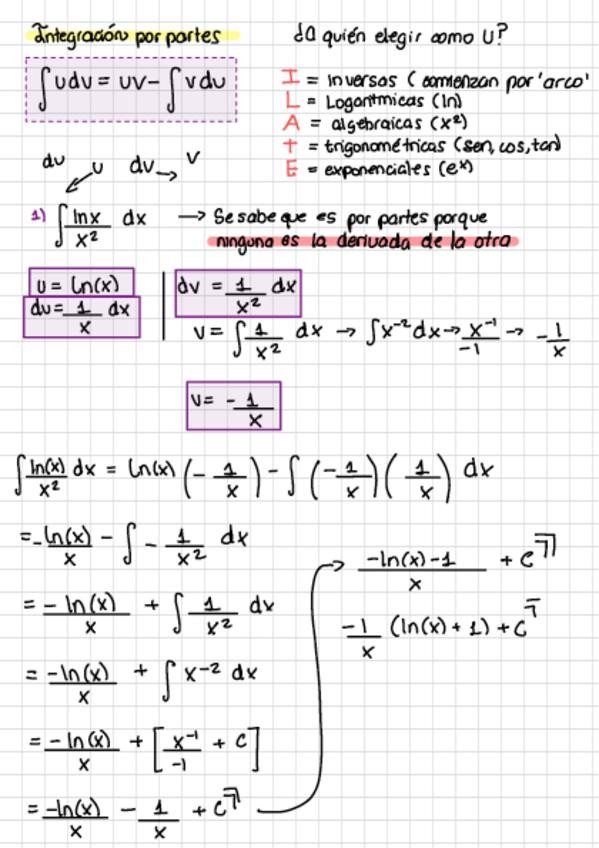 Integración por partes
¿A quién elegir como U?
∫udv = uv - ∫vdu
I = inversas (comienzan por 'arco'
L = Logarítmicas (ln)
A = algebraicas (x²)
t = trigonométricas (sen, cos, tan)
E = exponenciales (eˣ)
du u dv → v
1) ∫ lnx/x² dx → Se sabe que es por partes porque
ninguna es la derivada de la otra
u = ln(x)
du = 1/x dx
dv = 1/x² dx
v = ∫ 1/x² dx → ∫x⁻² dx → x⁻¹/-1 → -1/x
v = -1/x
∫ ln(x)/x² dx = ln(x) (-1/x) - ∫ (-1/x)(1/x) dx
= -ln(x)/x - ∫ - 1/x² dx
= -ln(x)/x + ∫ 1/x² dx
= -ln(x)/x + ∫ x⁻² dx
= -ln(x)/x + [x⁻¹/-1 + c]
= -ln(x)/x - 1/x + c
→ -ln(x)-1/x + c
-1/x (ln(x) + 1) + c